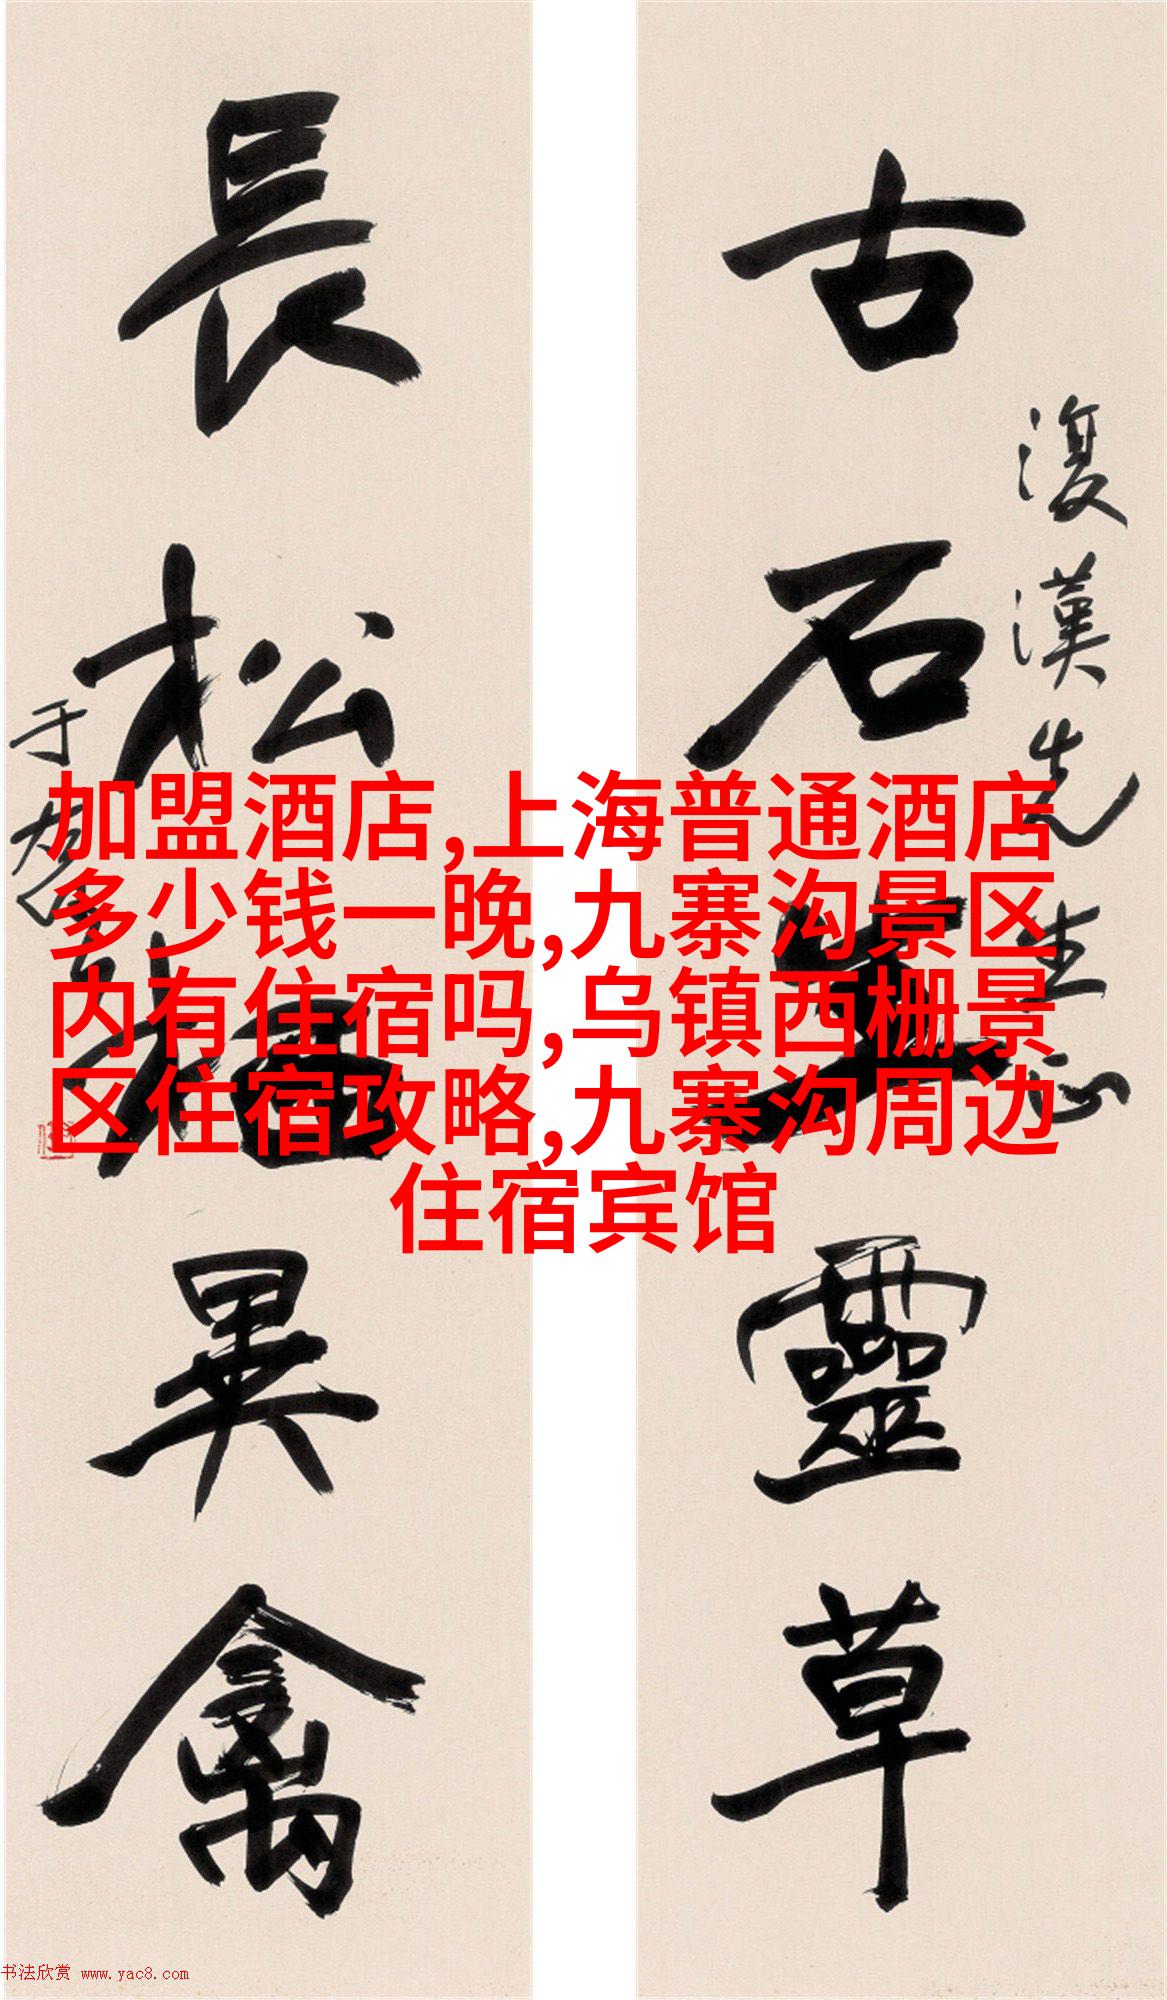 復漢先生正
古石生靈草
長松栖異禽
于右任
加盟酒店,上海普通酒店
多少钱一晚,九寨沟景区
内有住宿吗,乌镇西栅景
区住宿攻略,九寨沟周边
住宿宾馆
书法欣赏 www.yac8.com